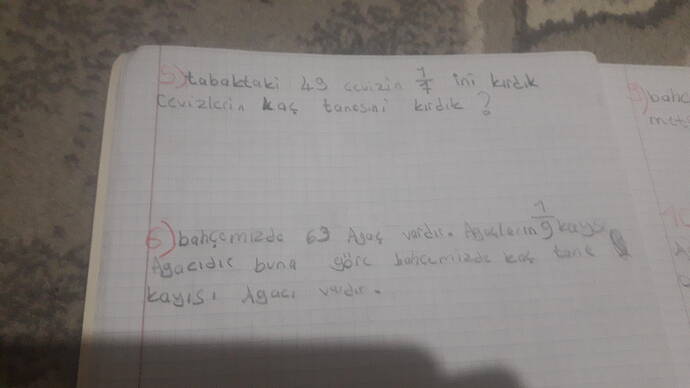 5) tabaktaki 49 cevizin 1/7 ini kırdık
cevizlerin kaç tanesini kırdık ?
6) bahçemizde 63 Agaç vardır. Agaçların 1/9 kayısı
Agacıdır buna göre bahçemizde kaç tane
kayısı Agacı vardır.
9) bahç
met